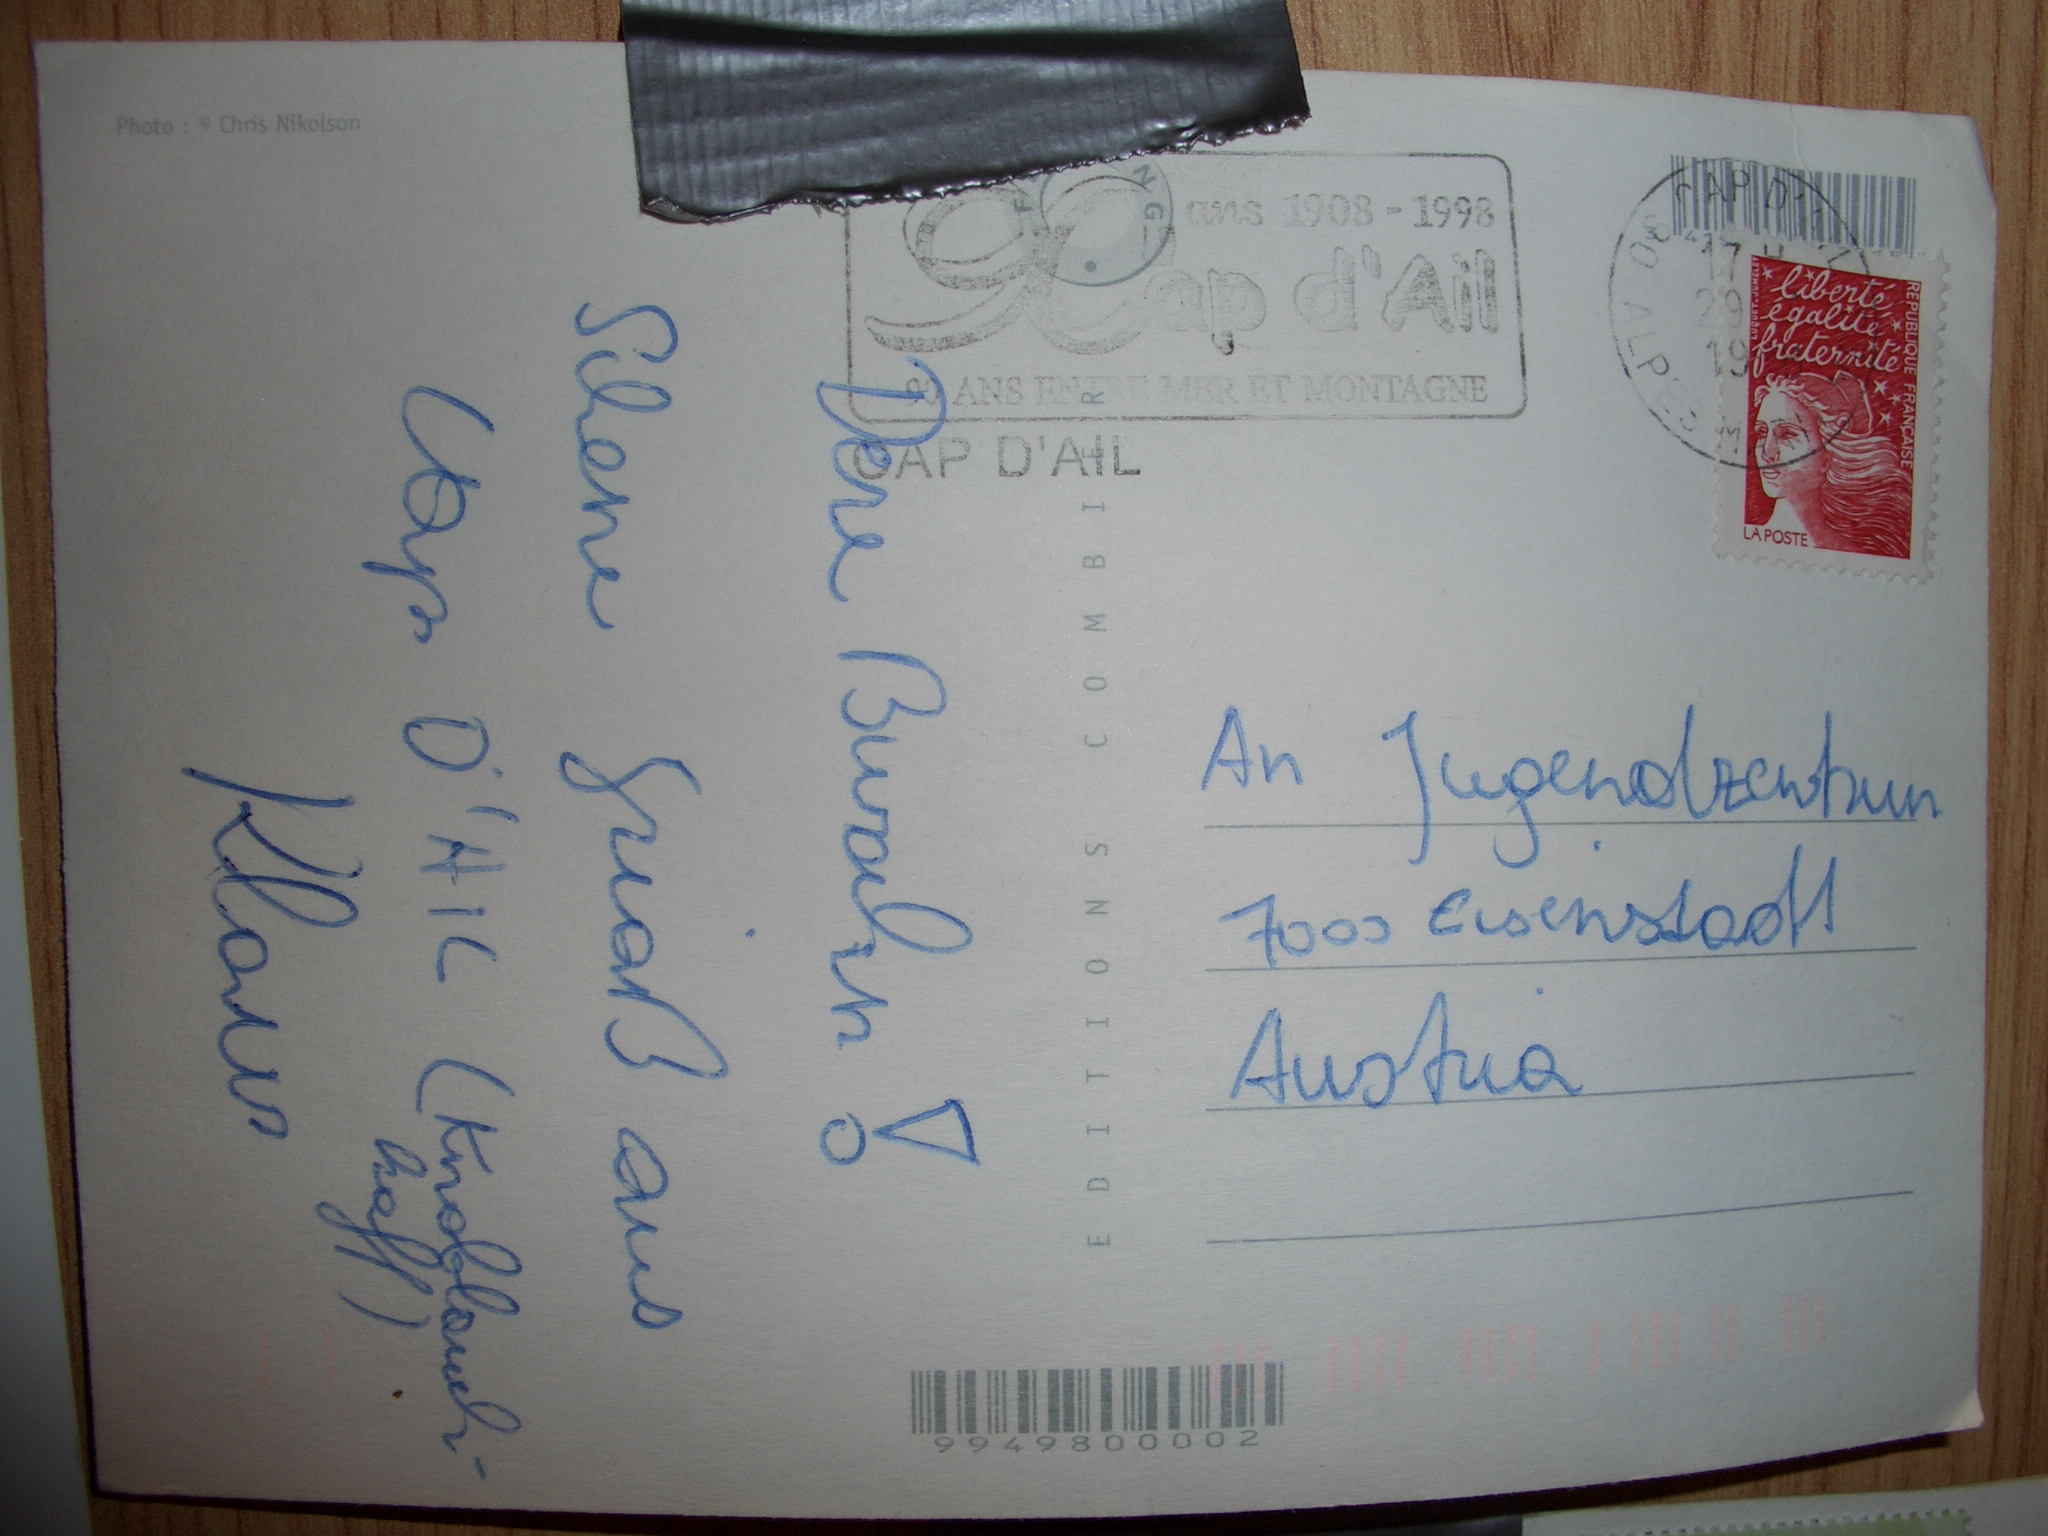 Photo : © Chris Nikolson
ans 1908 - 1998
Cap d'Ail
90 ANS ENTRE MER ET MONTAGNE
CAP D'AIL
CAP D'
06 ALPES M
17 H
29
19
REPUBLIQUE FRANÇAISE
liberté
égalité
fraternité
LA POSTE
Dere Buvahn!
Schene Griaß aus
Cap D'Ail (Knoblauch-
kaff)
Klaus
EDITIONS COMBIER
An Jugendzentrum
7000 Eisenstadt
Austria
9949800002